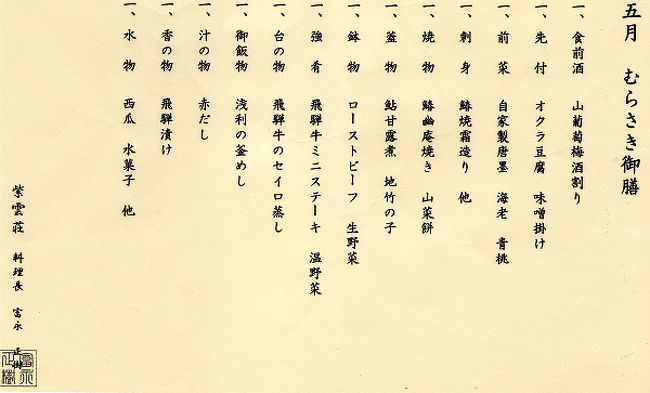 五月　むらさき御膳
一、食前酒　山葡萄梅酒割り
一、先付　オクラ豆腐　味噌掛け
一、前菜　自家製唐墨　海老　青桃
一、刺身　鰆焼霜造り　他
一、焼物　鰆幽庵焼き　山菜餅
一、蓋物　鮎甘露煮　地竹の子
一、鉢物　ローストビーフ　生野菜
一、強肴　飛騨牛ミニステーキ　温野菜
一、台の物　飛騨牛のセイロ蒸し
一、御飯物　浅利の釜めし
一、汁の物　赤だし
一、香の物　飛騨漬け
一、水物　西瓜　水菓子　他
紫雲荘　料理長　富永　正樹